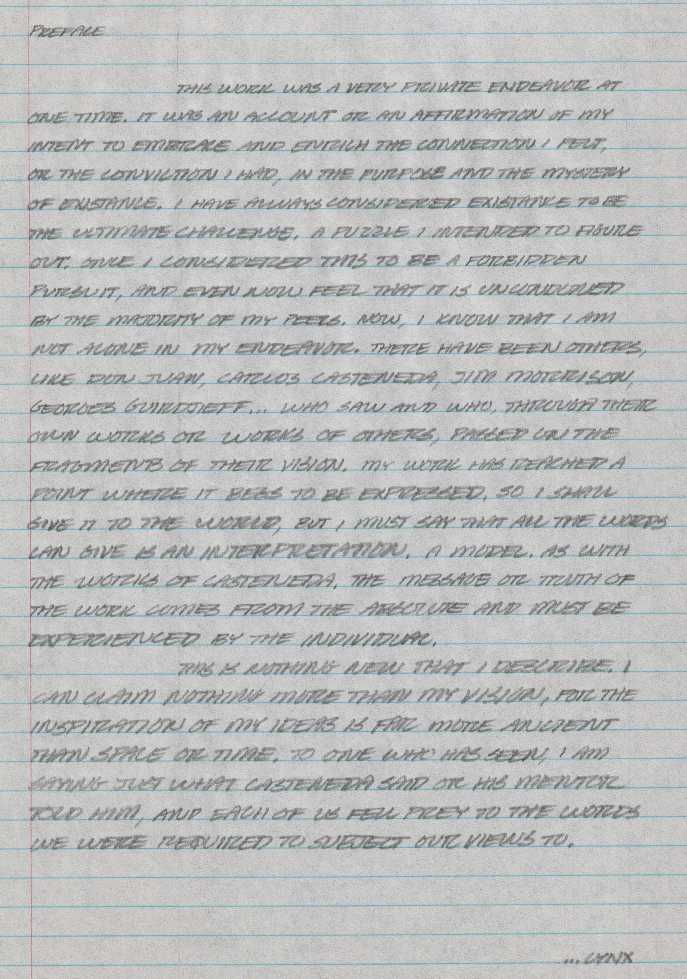 PREFACE
THIS WORK WAS A VERY PRIVATE ENDEAVOR AT
ONE TIME. IT WAS AN ACCOUNT OR AN AFFIRMATION OF MY
INTENT TO EMBRACE AND ENRICH THE CONNECTION I FELT,
OR THE CONVICTION I HAD, IN THE PURPOSE AND THE MYSTERY
OF EXISTANCE. I HAVE ALWAYS CONSIDERED EXISTANCE TO BE
THE ULTIMATE CHALLENGE. A PUZZLE I INTENDED TO FIGURE
OUT. ONCE I CONSIDERED THIS TO BE A FORBIDDEN
PURSUIT, AND EVEN NOW FEEL THAT IT IS UNCONDONED
BY THE MAJORITY OF MY PEERS. NOW, I KNOW THAT I AM
NOT ALONE IN MY ENDEAVOR. THERE HAVE BEEN OTHERS,
LIKE DON JUAN, CARLOS CASTENEDA, JIM MORRISON,
GEORGES GUIRDJIEFF... WHO SAW AND WHO, THROUGH THEIR
OWN WORKS OR WORKS OF OTHERS, PASSED ON THE
FRAGMENTS OF THEIR VISION. MY WORK HAS REACHED A
POINT WHERE IT BEGS TO BE EXPRESSED. SO I SHALL
GIVE IT TO THE WORLD, BUT I MUST SAY THAT ALL THE WORDS
CAN GIVE IS AN INTERPRETATION. A MODEL. AS WITH
THE WORKS OF CASTENEDA, THE MESSAGE OR TRUTH OF
THE WORK COMES FROM THE ABSOLUTE AND MUST BE
EXPERIENCED BY THE INDIVIDUAL.
THIS IS NOTHING NEW THAT I DESCRIBE. I
CAN CLAIM NOTHING MORE THAN MY VISION, FOR THE
INSPIRATION OF MY IDEAS IS FAR MORE ANCIENT
THAN SPACE OR TIME. TO ONE WHO HAS SEEN, I AM
SAYING JUST WHAT CASTENEDA SAID OR HIS MENTOR
TOLD HIM, AND EACH OF US FELL PREY TO THE WORDS
WE WERE REQUIRED TO SUBJECT OUR VIEWS TO.
...LYNX